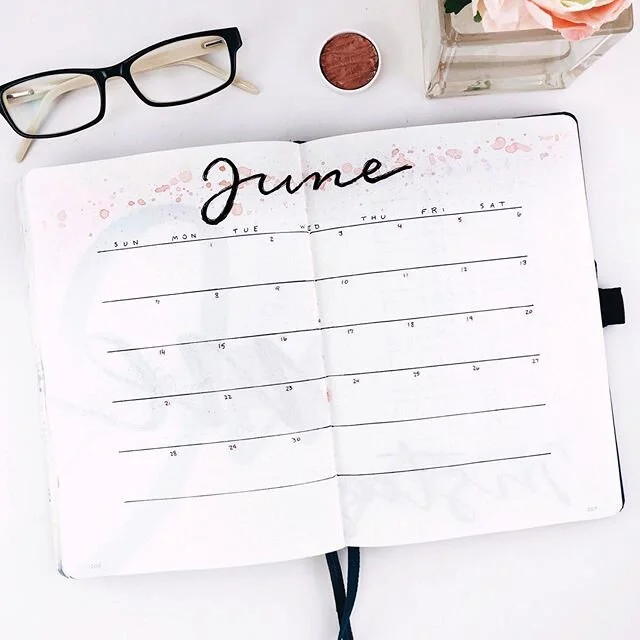 June
SUN MON TUE WED THU FRI SAT
1 2 3 4 5 6
7 8 9 10 11 12 13
14 15 16 17 18 19 20
21 22 23 24 25 26 27
28 29 30